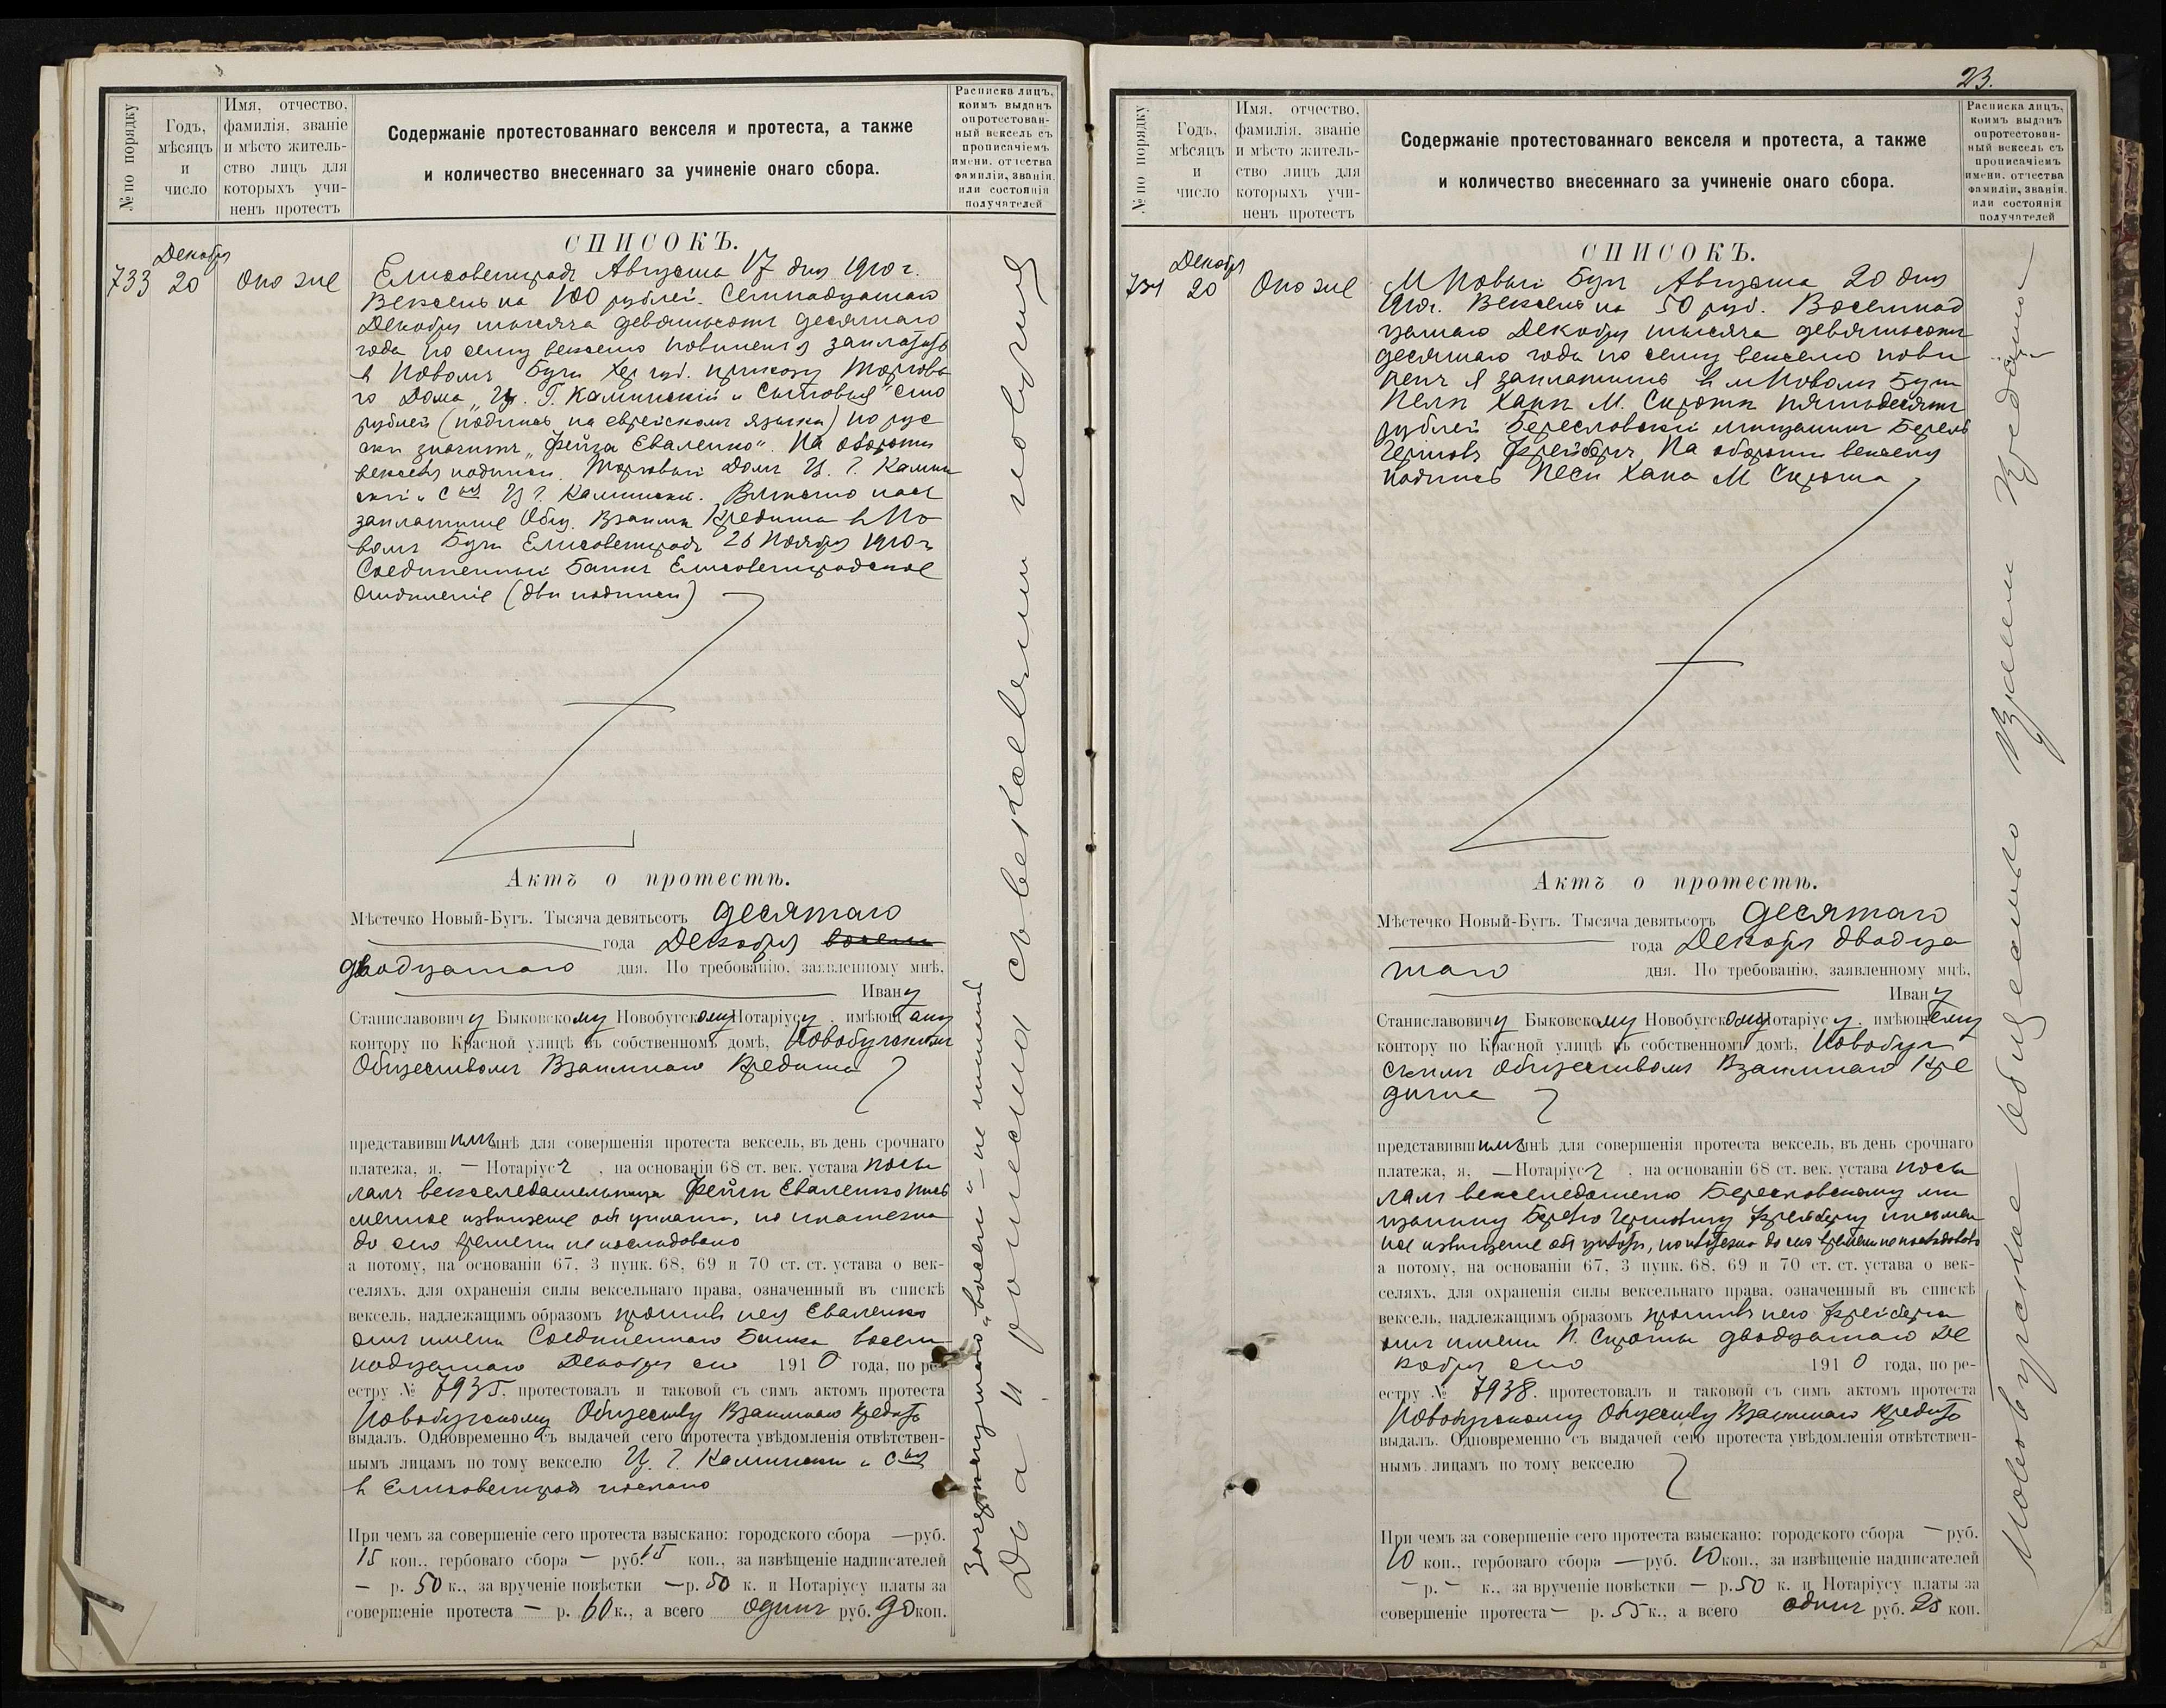 № по порядку
Годъ,
мѣсяцъ
и
число
Имя, отчество,
фамилія, званіе
и мѣсто житель-
ство лицъ для
которыхъ учи-
ненъ протестъ
Содержаніе протестованнаго векселя и протеста, а также
и количество внесеннаго за учиненіе онаго сбора.
Расписка лицъ,
коимъ выданъ
опротестован-
ный вексель съ
прописаніемъ
имени, отчества
фамиліи, званія,
или состоянія
получателей
СПИСОКЪ.
733
Декабря
20
Оно же
Елисаветградъ Августа 17 дня 1910 г.
Вексель на 100 рублей. Семнадцатаго
Декабря тысяча девятьсотъ десятаго
года по сему векселю повиненъ я заплатить
въ Новомъ Бугѣ Хер губ. приказу Торгова
го Дома „Ц. Г. Каминскій и Сыновья" сто
рублей (подпись на еврейскомъ языкѣ) по рус
ски значитъ „Фейга Еваленко". На оборотѣ
векселя подписи. Торговый Домъ Ц. Г. Камин
скій и Сья Ц Г. Каминскій. Вмѣсто насъ
заплатите Общ. Взаимн Кредита въ Но
вомъ Бугѣ Елисаветградъ 26 Ноября 1910 г
Соединенный Банкъ Елисаветградское
Отдѣленіе (двѣ подписи)
Актъ о протестѣ.
Мѣстечко Новый-Бугъ. Тысяча девятьсотъ десятаго
года Декабря восемн
двадцатаго дня. По требованію, заявленному мнѣ,
Ивану
Станиславовичу Быковскому Новобугскому Нотаріусу, имѣющему
контору по Красной улицѣ въ собственномъ домѣ, Новобугскимъ
Обществомъ Взаимнаго Кредита
представившимъ мнѣ для совершенія протеста вексель, въ день срочнаго
платежа, я, — Нотаріусъ, на основаніи 68 ст. век. устава посы
лалъ векселедательницѣ Фейгѣ Еваленко пись
менное извѣщеніе объ уплатѣ, но платежа
до сего времени не послѣдовало
а потому, на основаніи 67, 3 пунк. 68, 69 и 70 ст. ст. устава о век-
селяхъ, для охраненія силы вексельнаго права, означенный въ спискѣ
вексель, надлежащимъ образомъ противъ нея Еваленко
отъ имени Соединеннаго Банка восем
надцатаго Декабря сего 1910 года, по ре-
естру № 7935, протестовалъ и таковой съ симъ актомъ протеста
Новобугскому Обществу Взаимнаго Кредита
выдалъ. Одновременно съ выдачей сего протеста увѣдомленія отвѣтствен-
нымъ лицамъ по тому векселю Ц. Г. Каминскій и Сья
въ Елисаветградъ послано
При чемъ за совершеніе сего протеста взыскано: городского сбора — руб.
15 коп., гербоваго сбора — руб. 15 коп., за извѣщеніе надписателей
— р. 50 к., за врученіе повѣстки — р. 50 к. и Нотаріусу платы за
совершеніе протеста — р. 60 к., а всего одинъ руб. 90 коп.
Зачеркнутаго „восемн" — не читать
Два протеста съ векселями получилъ
23.
№ по порядку
Годъ,
мѣсяцъ
и
число
Имя, отчество,
фамилія, званіе
и мѣсто житель-
ство лицъ для
которыхъ учи-
ненъ протестъ
Содержаніе протестованнаго векселя и протеста, а также
и количество внесеннаго за учиненіе онаго сбора.
Расписка лицъ,
коимъ выданъ
опротестован-
ный вексель съ
прописаніемъ
имени, отчества
фамиліи, званія,
или состоянія
получателей
СПИСОКЪ.
734
Декабря
20
Оно же
М Новый Бугъ Августа 20 дня
1910 г. Вексель на 50 руб. Восемнад
цатаго Декабря тысяча девятьсотъ
десятаго года по сему векселю пови
ненъ я заплатить въ м Новомъ Бугѣ
Песѣ Ханѣ М. Сиротѣ пятьдесятъ
рублей Береславскій мѣщанинъ Берель
Фрейбергъ. На оборотѣ векселя
подпись Песи Хана М Сирота
Актъ о протестѣ.
Мѣстечко Новый-Бугъ. Тысяча девятьсотъ десятаго
года Декабря двадца
таго дня. По требованію, заявленному мнѣ,
Ивану
Станиславовичу Быковскому Новобугскому Нотаріусу, имѣющему
контору по Красной улицѣ въ собственномъ домѣ, Новобуг
скимъ Обществомъ Взаимнаго Кре
дита
представившимъ мнѣ для совершенія протеста вексель, въ день срочнаго
платежа, я, — Нотаріусъ, на основаніи 68 ст. век. устава посы
лалъ векселедателю Береславскому мѣ
щанину Берелю Фрейбергу письмен
ное извѣщеніе объ уплатѣ, но платежа до сего времени не послѣдовало
а потому, на основаніи 67, 3 пунк. 68, 69 и 70 ст. ст. устава о век-
селяхъ, для охраненія силы вексельнаго права, означенный въ спискѣ
вексель, надлежащимъ образомъ противъ него Фрейберга
отъ имени П. Сироты двадцатаго Де
кабря сего 1910 года, по ре-
естру № 7938, протестовалъ и таковой съ симъ актомъ протеста
Новобугскому Обществу Взаимнаго Кредита
выдалъ. Одновременно съ выдачей сего протеста увѣдомленія отвѣтствен-
нымъ лицамъ по тому векселю
При чемъ за совершеніе сего протеста взыскано: городского сбора — руб.
10 коп., гербоваго сбора — руб. 10 коп., за извѣщеніе надписателей
— р. — к., за врученіе повѣстки — р. 50 к. и Нотаріусу платы за
совершеніе протеста — р. 55 к., а всего одинъ руб. 25 коп.
Новобугское Общество Взаимн Кредита